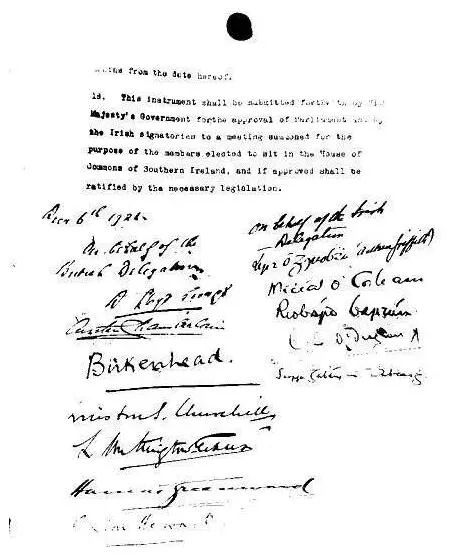 from the date hereof.
18. This instrument shall be submitted forthwith by His
Majesty's Government forthe approval of Parliament and by
the Irish signatories to a meeting summoned for the
purpose of the members elected to sit in the House of
Commons of Southern Ireland, and if approved shall be
ratified by the necessary legislation.
Decr 6th 1921.
On behalf of the
British Delegation
D Lloyd George
Austen Chamberlain
Birkenhead.
Winston S. Churchill
L Worthington-Evans
Hamar Greenwood
Gordon Hewart
On behalf of the Irish
Delegation
(Arthur Griffith)
Micheál Ó Coileain
Riobárd Bartún